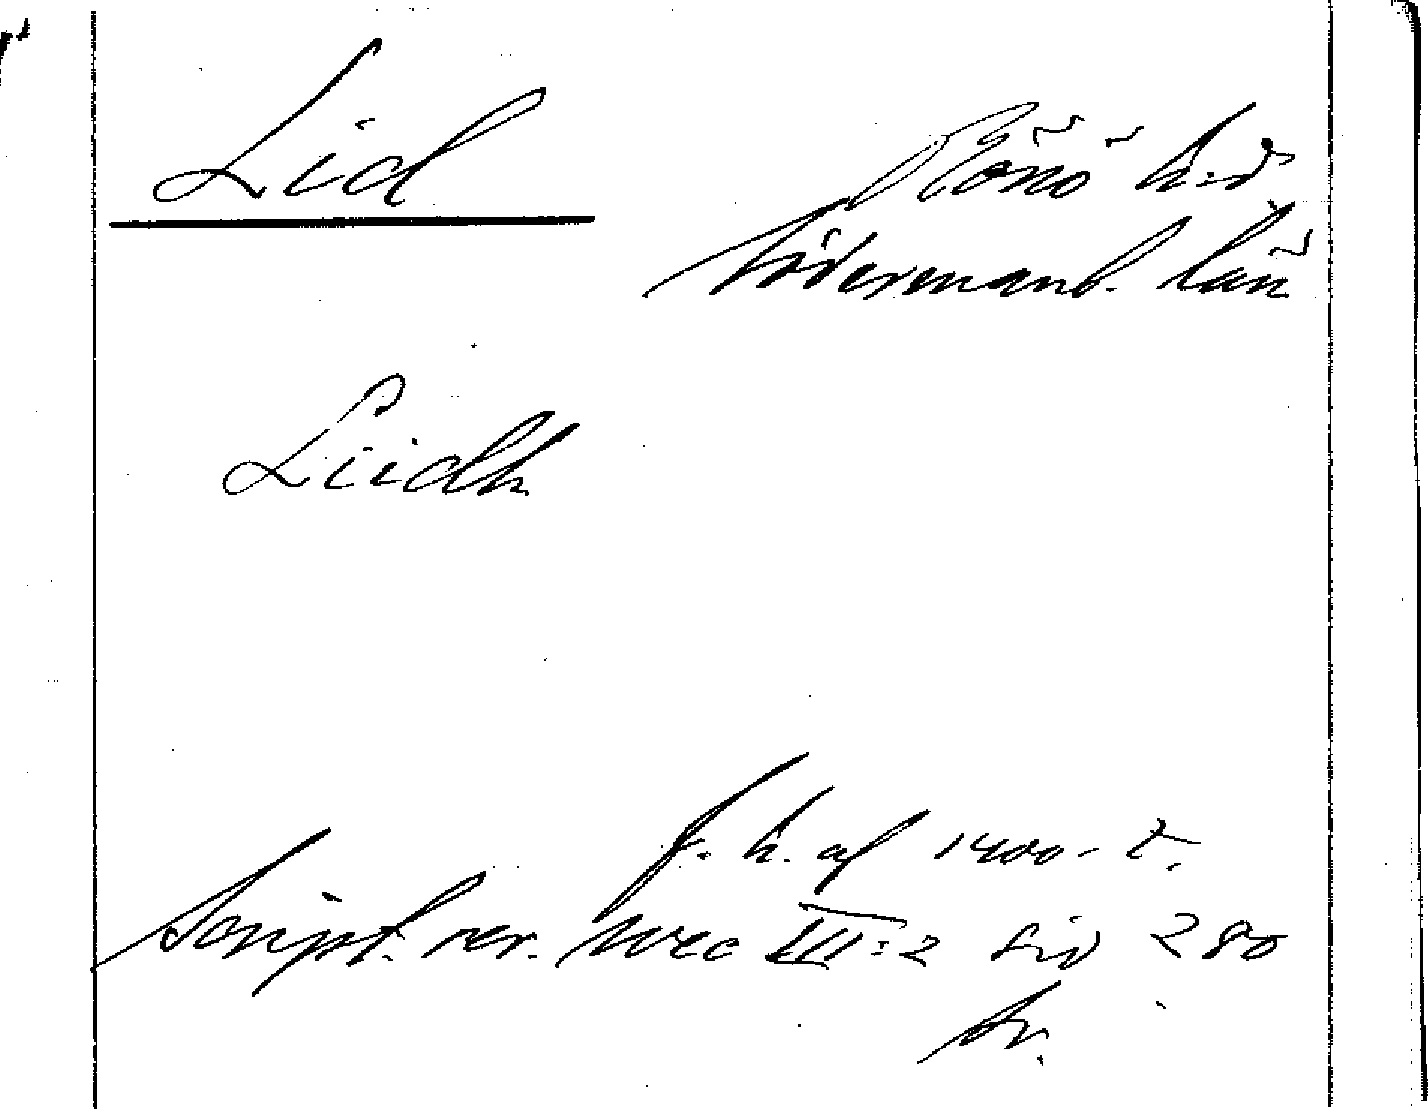 Lid
Rönö h:d
Södermanl. län
Liidh
f. h. af 1400-t.
Script. rer. svec III:2 sid 280
tr.